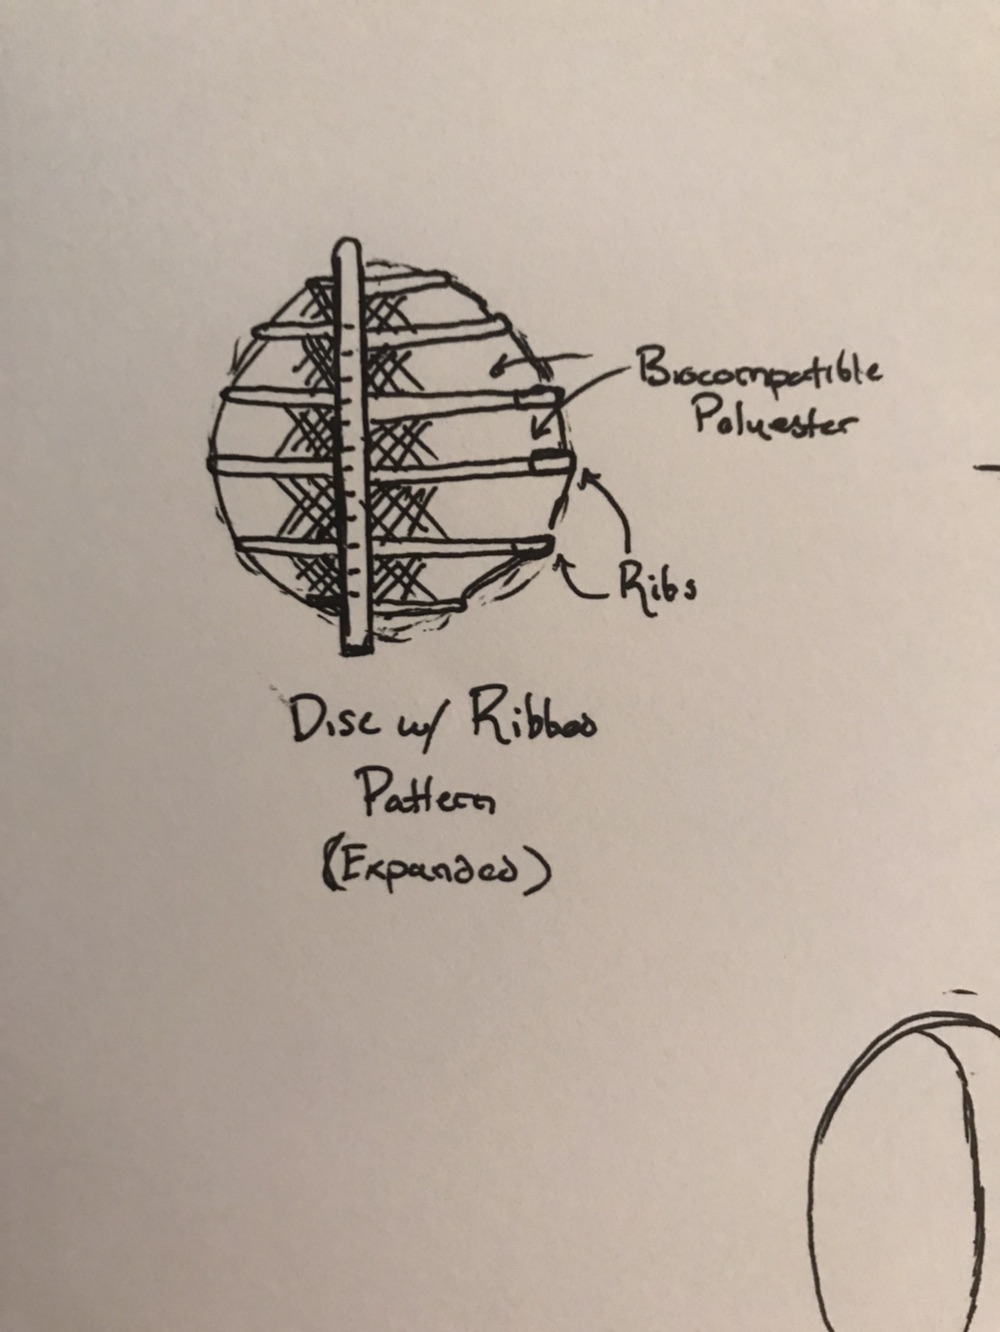 Biocompatible
Polyester
Ribs
Disc w/ Ribbed
Pattern
(Expanded)